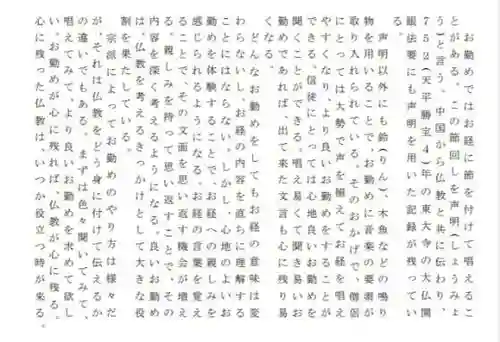 お勤めではお経に節を付けて唱えるこ
とがある。この節回しを声明(しょうみょ
う)と言う。中国から仏教と共に伝わり、
752(天平勝宝4)年の東大寺の大仏開
眼法要にも声明を用いた記録が残ってい
る。
声明以外にも鈴(りん)、木魚などの鳴り
物を用いることで、お勤めに音楽の要素が
取り入れられている。そのおかげで、僧侶
にとっては大勢で声を揃えてお経を唱え
やすくなり、より良いお勤めをすることが
できる。信徒にとっては心地良いお勤めを
聞くことができる。唱え易くて聞き易いお
勤めであれば、出て来た文言も心に残り易
くなる。
どんなお勤めをしてもお経の意味は変
わらないし、お経の内容を直ちに理解する
ことにはならない。しかし、心地のよいお
勤めを体験することで、お経への親しみを
感じられるようになる。お経の言葉を覚え
ることで、その文面を思い返す機会が増え
る。親しみを持って思い返すことで、その
内容を深く考えるようになる。良いお勤め
は、仏教を考えるきっかけとして大きな役
割を果たしている。
宗派によってお勤めのやり方は様々だ
が、それは仏教をどう身に付けて伝えるか
の違いでもある。まずは色々聞いてみて、
唱えてみて、より良いお勤めを求めて欲し
い。お勤めが心に残れば、仏教が心に残る。
心に残った仏教は、いつか役立つ時が来る。